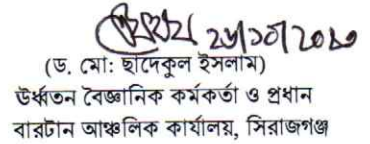 ২৮/১০/২০২০
(ড. মো: ছাদেকুল ইসলাম)
উর্ধ্বতন বৈজ্ঞানিক কর্মকর্তা ও প্রধান
বারটান আঞ্চলিক কার্যালয়, সিরাজগঞ্জ